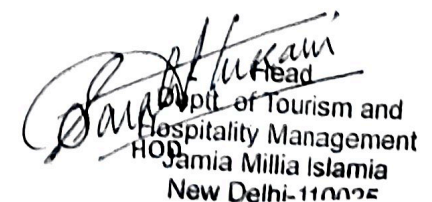 Head
Deptt. of Tourism and
Hospitality Management
HOD
Jamia Millia Islamia
New Delhi-110025